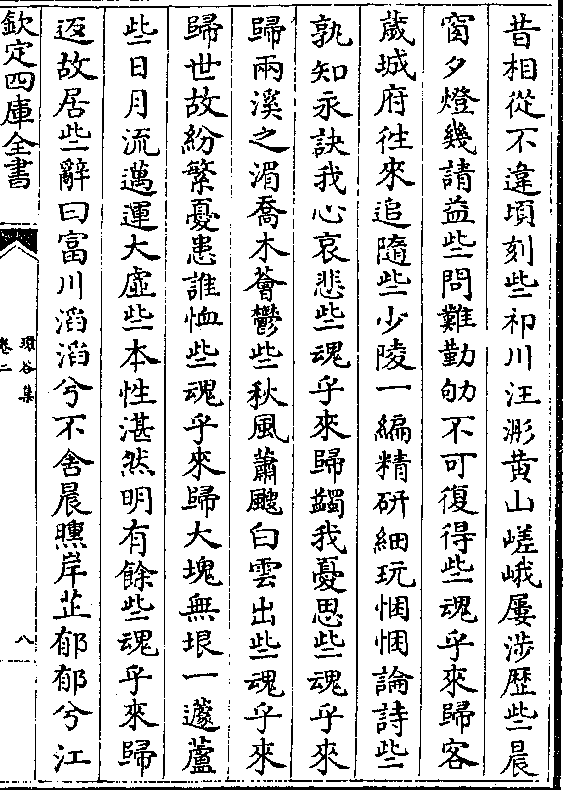 昔相從不違頃刻些祁川汪濊黄山嵯峨屢涉歴些晨
窗夕燈幾請益些問難勤劬不可復得些魂乎來歸客
歲城府徃來追隨些少陵一編精研細玩悃悃論詩些
孰知永訣我心哀悲些魂乎來歸蠲我憂思些魂乎來
歸兩溪之湄喬木薈鬱些秋風蕭颼白雲出些魂乎來
歸世故紛繁憂患誰恤些魂乎來歸大塊無垠一蘧蘆
些日月流邁運大虚些本性湛然明有餘些魂乎來歸
返故居些辭曰富川滔滔兮不舍晨曛岸芷郁郁兮江
欽定四庫全書
環谷集
卷二
八